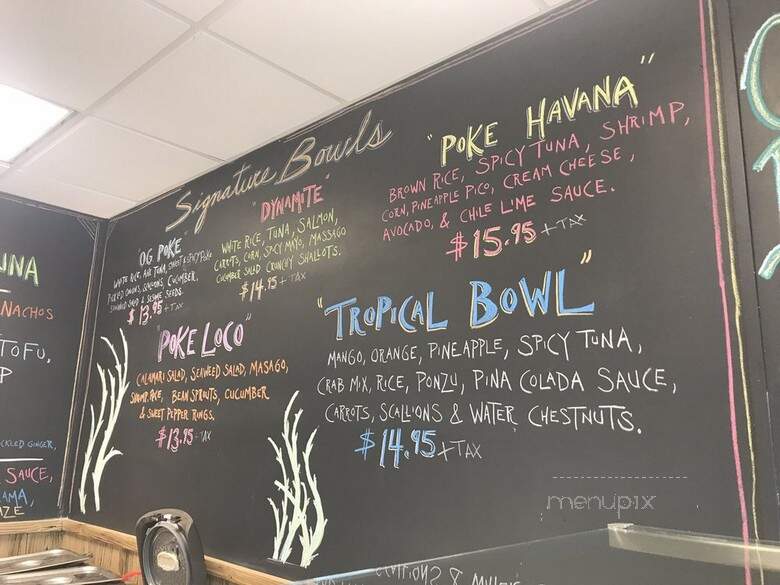 Signature Bowls
"OG POKE"
WHITE RICE, AHI TUNA, SWEET & SPICY POKE
PICKLED ONIONS, SCALLIONS, CUCUMBER,
SEAWEED SALAD & SESAME SEEDS.
$13.95 + TAX
"DYNAMITE"
WHITE RICE, TUNA, SALMON,
CARROTS, CORN, SPICY MAYO, MASSAGO
CUCUMBER SALAD CRUNCHY SHALLOTS.
$14.15 + TAX
"POKE HAVANA"
BROWN RICE, SPICY TUNA, SHRIMP,
CORN, PINEAPPLE PICO, CREAM CHEESE,
AVOCADO, & CHILE LIME SAUCE.
$15.95 + TAX
"POKE LOCO"
CALAMARI SALAD, SEAWEED SALAD, MASAGO,
SHRIMP, RICE, BEAN SPROUTS, CUCUMBER
& SWEET PEPPER RINGS.
$13.95 + TAX
"TROPICAL BOWL"
MANGO, ORANGE, PINEAPPLE, SPICY TUNA,
CRAB MIX, RICE, PONZU, PINA COLADA SAUCE,
CARROTS, SCALLIONS & WATER CHESTNUTS.
$14.95 + TAX
UNA
NACHOS
TOFU,
P
CKLED GINGER,
SAUCE,
AMA,
ZE
menupix